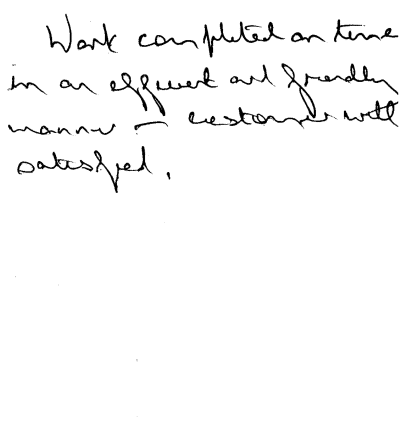 Work completed on time
in an efficient and friendly
manner – customer well
satisfied.